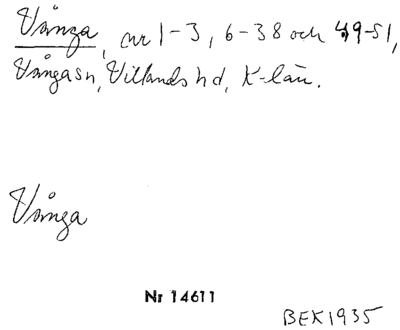 Vånga, nr 1-3, 6-38 och 49-51,
Vånga sn, Villands hd, K-län.
Vånga
Nr 14611
BEK 1935